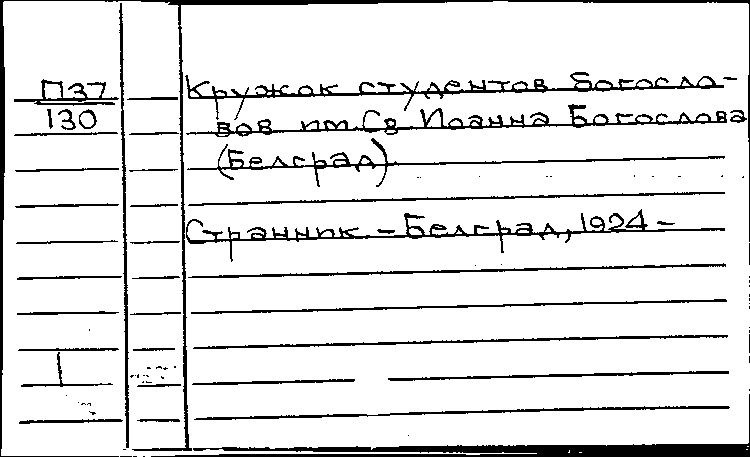 П37
130
Кружок студентов богосло-
вов им. Св Иоанна Богослова
(Белград)
Странник. - Белград, 1924 -